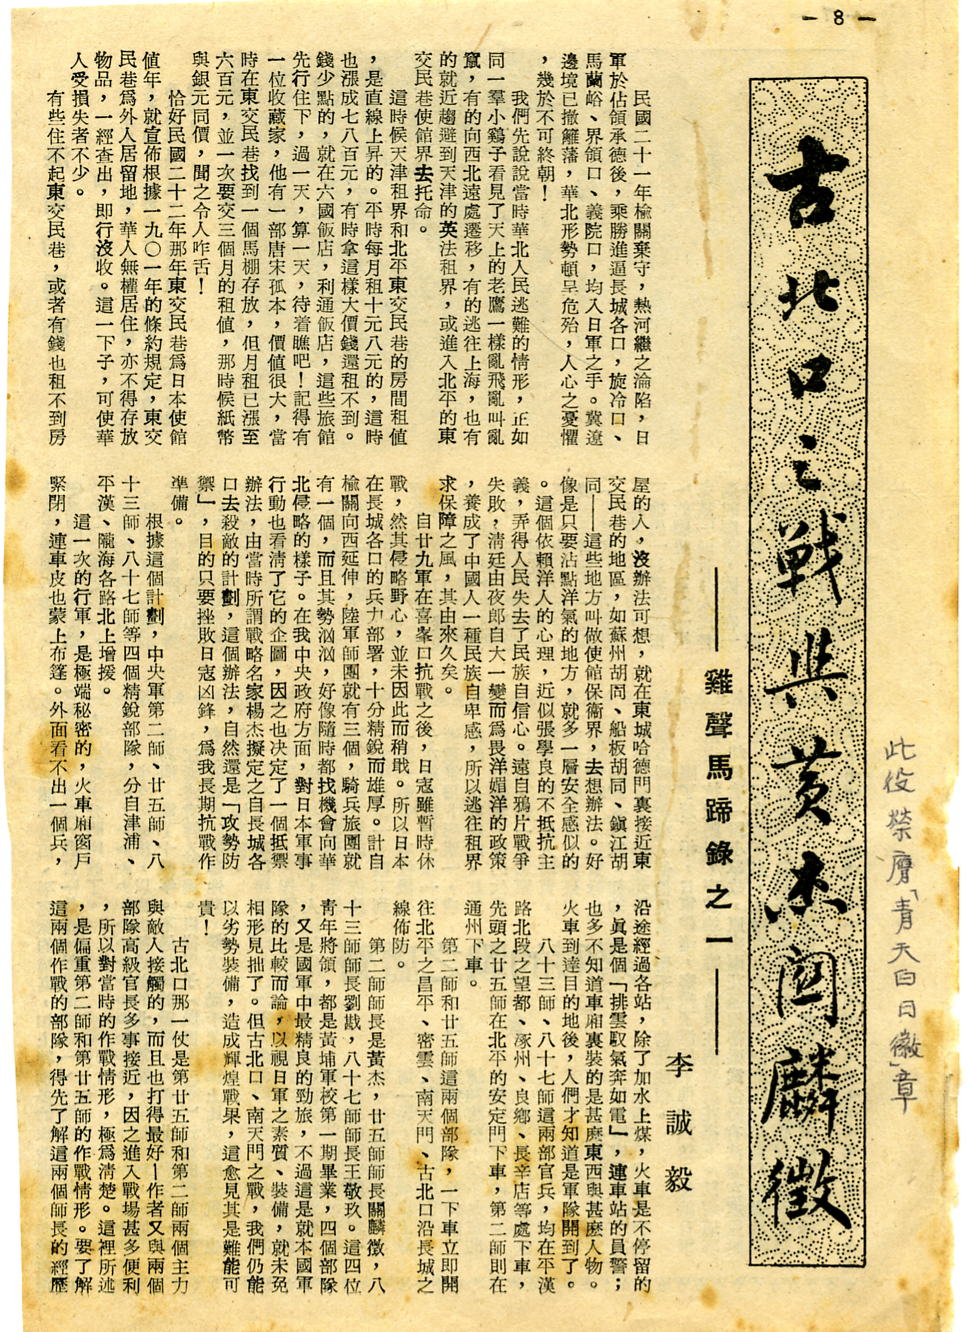 — 8 —
古北口之戰與黃杰關麟徵
此役榮膺「青天白日徽」章
——雞聲馬蹄錄之一——
李誠毅
民國二十一年榆關棄守，熱河繼之淪陷，日
軍於佔領承德後，乘勝進逼長城各口，旋冷口、
馬蘭峪、界領口、義院口，均入日軍之手。冀遼
邊境已撤籬藩，華北形勢頓呈危殆，人心之憂懼
，幾於不可終朝！
我們先說說當時華北人民逃難的情形，正如
同一羣小鷄子看見了天上的老鷹一樣亂飛亂叫亂
竄，有的向西北遠處遷移，有的逃往上海，也有
的就近趨避到天津的英法租界，或進入北平的東
交民巷使館界去托命。
這時候天津租界和北平東交民巷的房間租值
，是直線上昇的。平時每月租十元八元的，這時
也漲成七八百元，有時拿這樣大價錢還租不到。
錢少點的，就在六國飯店，利通飯店，這些旅館
先行住下，過一天，算一天，待着瞧吧！記得有
一位收藏家，他有一部唐宋孤本，價值很大，當
時在東交民巷找到一個馬棚存放，但月租已漲至
六百元，並一次要交三個月的租值，那時候紙幣
與銀元同價，聞之令人咋舌！
恰好民國二十二年那年東交民巷爲日本使館
值年，就宣佈根據一九〇一年的條約規定，東交
民巷爲外人居留地，華人無權居住，亦不得存放
物品，一經查出，即行沒收。這一下子，可使華
人受損失者不少。
有些住不起東交民巷，或者有錢也租不到房
屋的人，沒辦法可想，就在東城哈德門裏接近東
交民巷的地區，如蘇州胡同、船板胡同、鎮江胡
同——這些地方叫做使館保衞界，去想辦法。好
像是只要沾點洋氣的地方，就多一層安全感似的
。這個依賴洋人的心理，近似張學良的不抵抗主
義，弄得人民失去了民族自信心。遠自鴉片戰爭
失敗，清廷由夜郎自大一變而爲畏洋媚洋的政策
，養成了中國人一種民族自卑感，所以逃往租界
求保障之風，其由來久矣。
自廿九軍在喜峯口抗戰之後，日寇雖暫時休
戰，然其侵略野心，並未因此而稍戢。所以日本
在長城各口的兵力部署，十分精銳而雄厚。計自
榆關向西延伸，陸軍師團就有三個，騎兵旅團就
有一個，而且其勢洶洶，好像隨時都找機會向華
北侵略的樣子。在我中央政府方面，對日本軍事
行動也看淸了它的企圖，因之也決定了一個抵禦
辦法，由當時所謂戰略名家楊杰擬定之自長城各
口去殺敵的計劃，這個辦法，自然還是「攻勢防
禦」，目的只要挫敗日寇凶鋒，爲我長期抗戰作
準備。
根據這個計劃，中央軍第二師、廿五師、八
十三師、八十七師等四個精銳部隊，分自津浦、
平漢、隴海各路北上增援。
這一次的行軍，是極端秘密的，火車廂窗戶
緊閉，連車皮也蒙上布篷。外面看不出一個兵，
沿途經過各站，除了加水上煤，火車是不停留的
，眞是個「排雲馭氣奔如電」，連車站的員警；
也多不知道車廂裏裝的是甚麽東西與甚麽人物。
火車到達目的地後，人們才知道是軍隊開到了。
八十三師、八十七師這兩部官兵，均在平漢
路北段之望都、涿州、良鄉、長辛店等處下車，
先頭之廿五師在北平的安定門下車，第二師則在
通州下車。
第二師和廿五師這兩個部隊，一下車立即開
往北平之昌平、密雲、南天門、古北口沿長城之
線佈防。
第二師師長是黃杰，廿五師師長關麟徵，八
十三師師長劉戡，八十七師師長王敬玖。這四位
靑年將領，都是黃埔軍校第一期畢業，四個部隊
，又是國軍中最精良的勁旅，不過這是就本國軍
隊的比較而論，以視日軍之素質、裝備，就未免
相形見拙了。但古北口、南天門之戰，我們仍能
以劣勢裝備，造成輝煌戰果，這愈見其是難能可
貴！
古北口那一仗是第廿五師和第二師兩個主力
與敵人接觸的，而且也打得最好—作者又與兩個
部隊高級官長多事接近，因之進入戰場甚多便利
，所以對當時的作戰情形，極爲淸楚。這裡所述
，是偏重第二師和第廿五師的作戰情形。要了解
這兩個作戰的部隊，得先了解這兩個師長的經歷